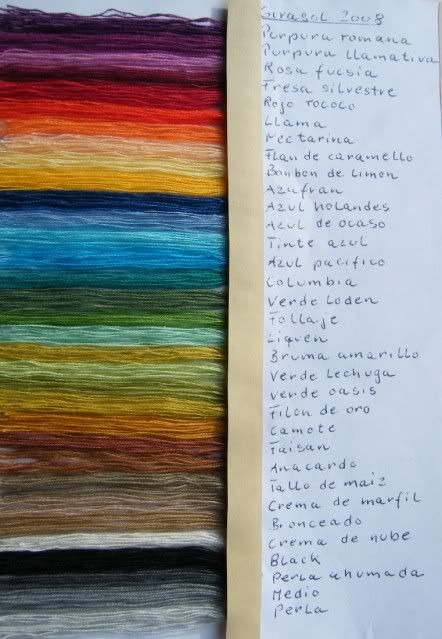 Girasol 2008
Purpura romana
Purpura llamativa
Rosa fucsia
Fresa silvestre
Rojo rococo
Llama
Nectarina
Flan de caramello
Bonbon de limon
Azafran
Azul holandes
Azul de ocaso
Tinte azul
Azul pacifico
Columbia
Verde Loden
Follaje
Liquen
Bruma amarillo
Verde Lechuga
Verde oasis
Filon de oro
Camote
Faisan
Anacardo
Tallo de maiz
Crema de marfil
Bronceado
Crema de nube
Black
Perla ahumada
Medio
Perla